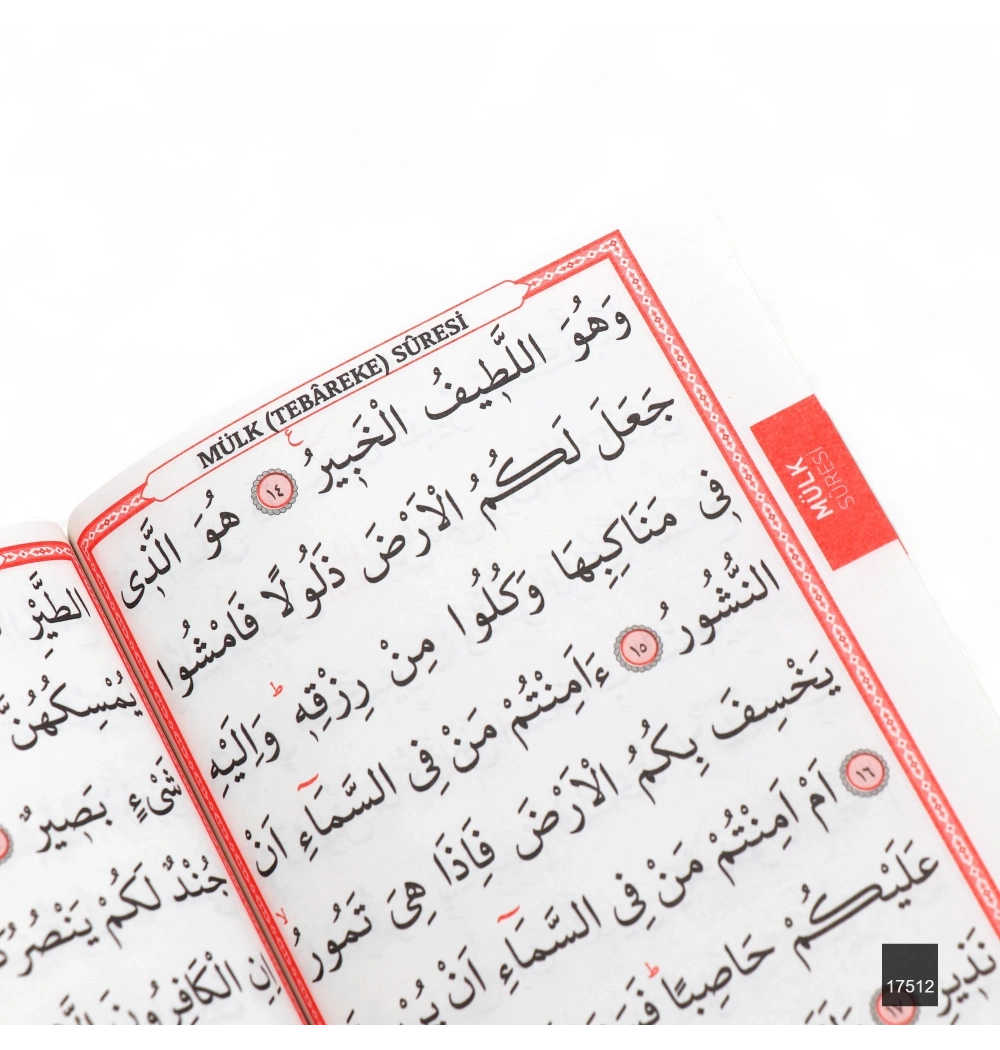 MÜLK (TEBÂREKE) SÛRESİ
وَهُوَ اللَّطٖيفُ الْخَبٖيرُ ﴿١٤﴾ هُوَ الَّذٖى
جَعَلَ لَكُمُ الْاَرْضَ ذَلُولًا فَامْشُوا
فٖى مَنَاكِبِهَا وَكُلُوا مِنْ رِزْقِهٖ ط وَاِلَيْهِ
النُّشُورُ ﴿١٥﴾ ءَاَمِنْتُمْ مَنْ فِى السَّمَٓاءِ اَنْ
يَخْسِفَ بِكُمُ الْاَرْضَ فَاِذَا هِىَ تَمُورُ لا
﴿١٦﴾ اَمْ اَمِنْتُمْ مَنْ فِى السَّمَٓاءِ اَنْ
عَلَيْكُمْ حَاصِبًا ط
نَذٖيرِ ﴿١٧﴾
MÜLK
SÛRESİ
الطَّيْرِ
يُمْسِكُهُنَّ
شَیْءٍ بَصٖيرٌ
جُنْدٌ لَكُمْ
اِنِ الْكَافِرُونَ
17512